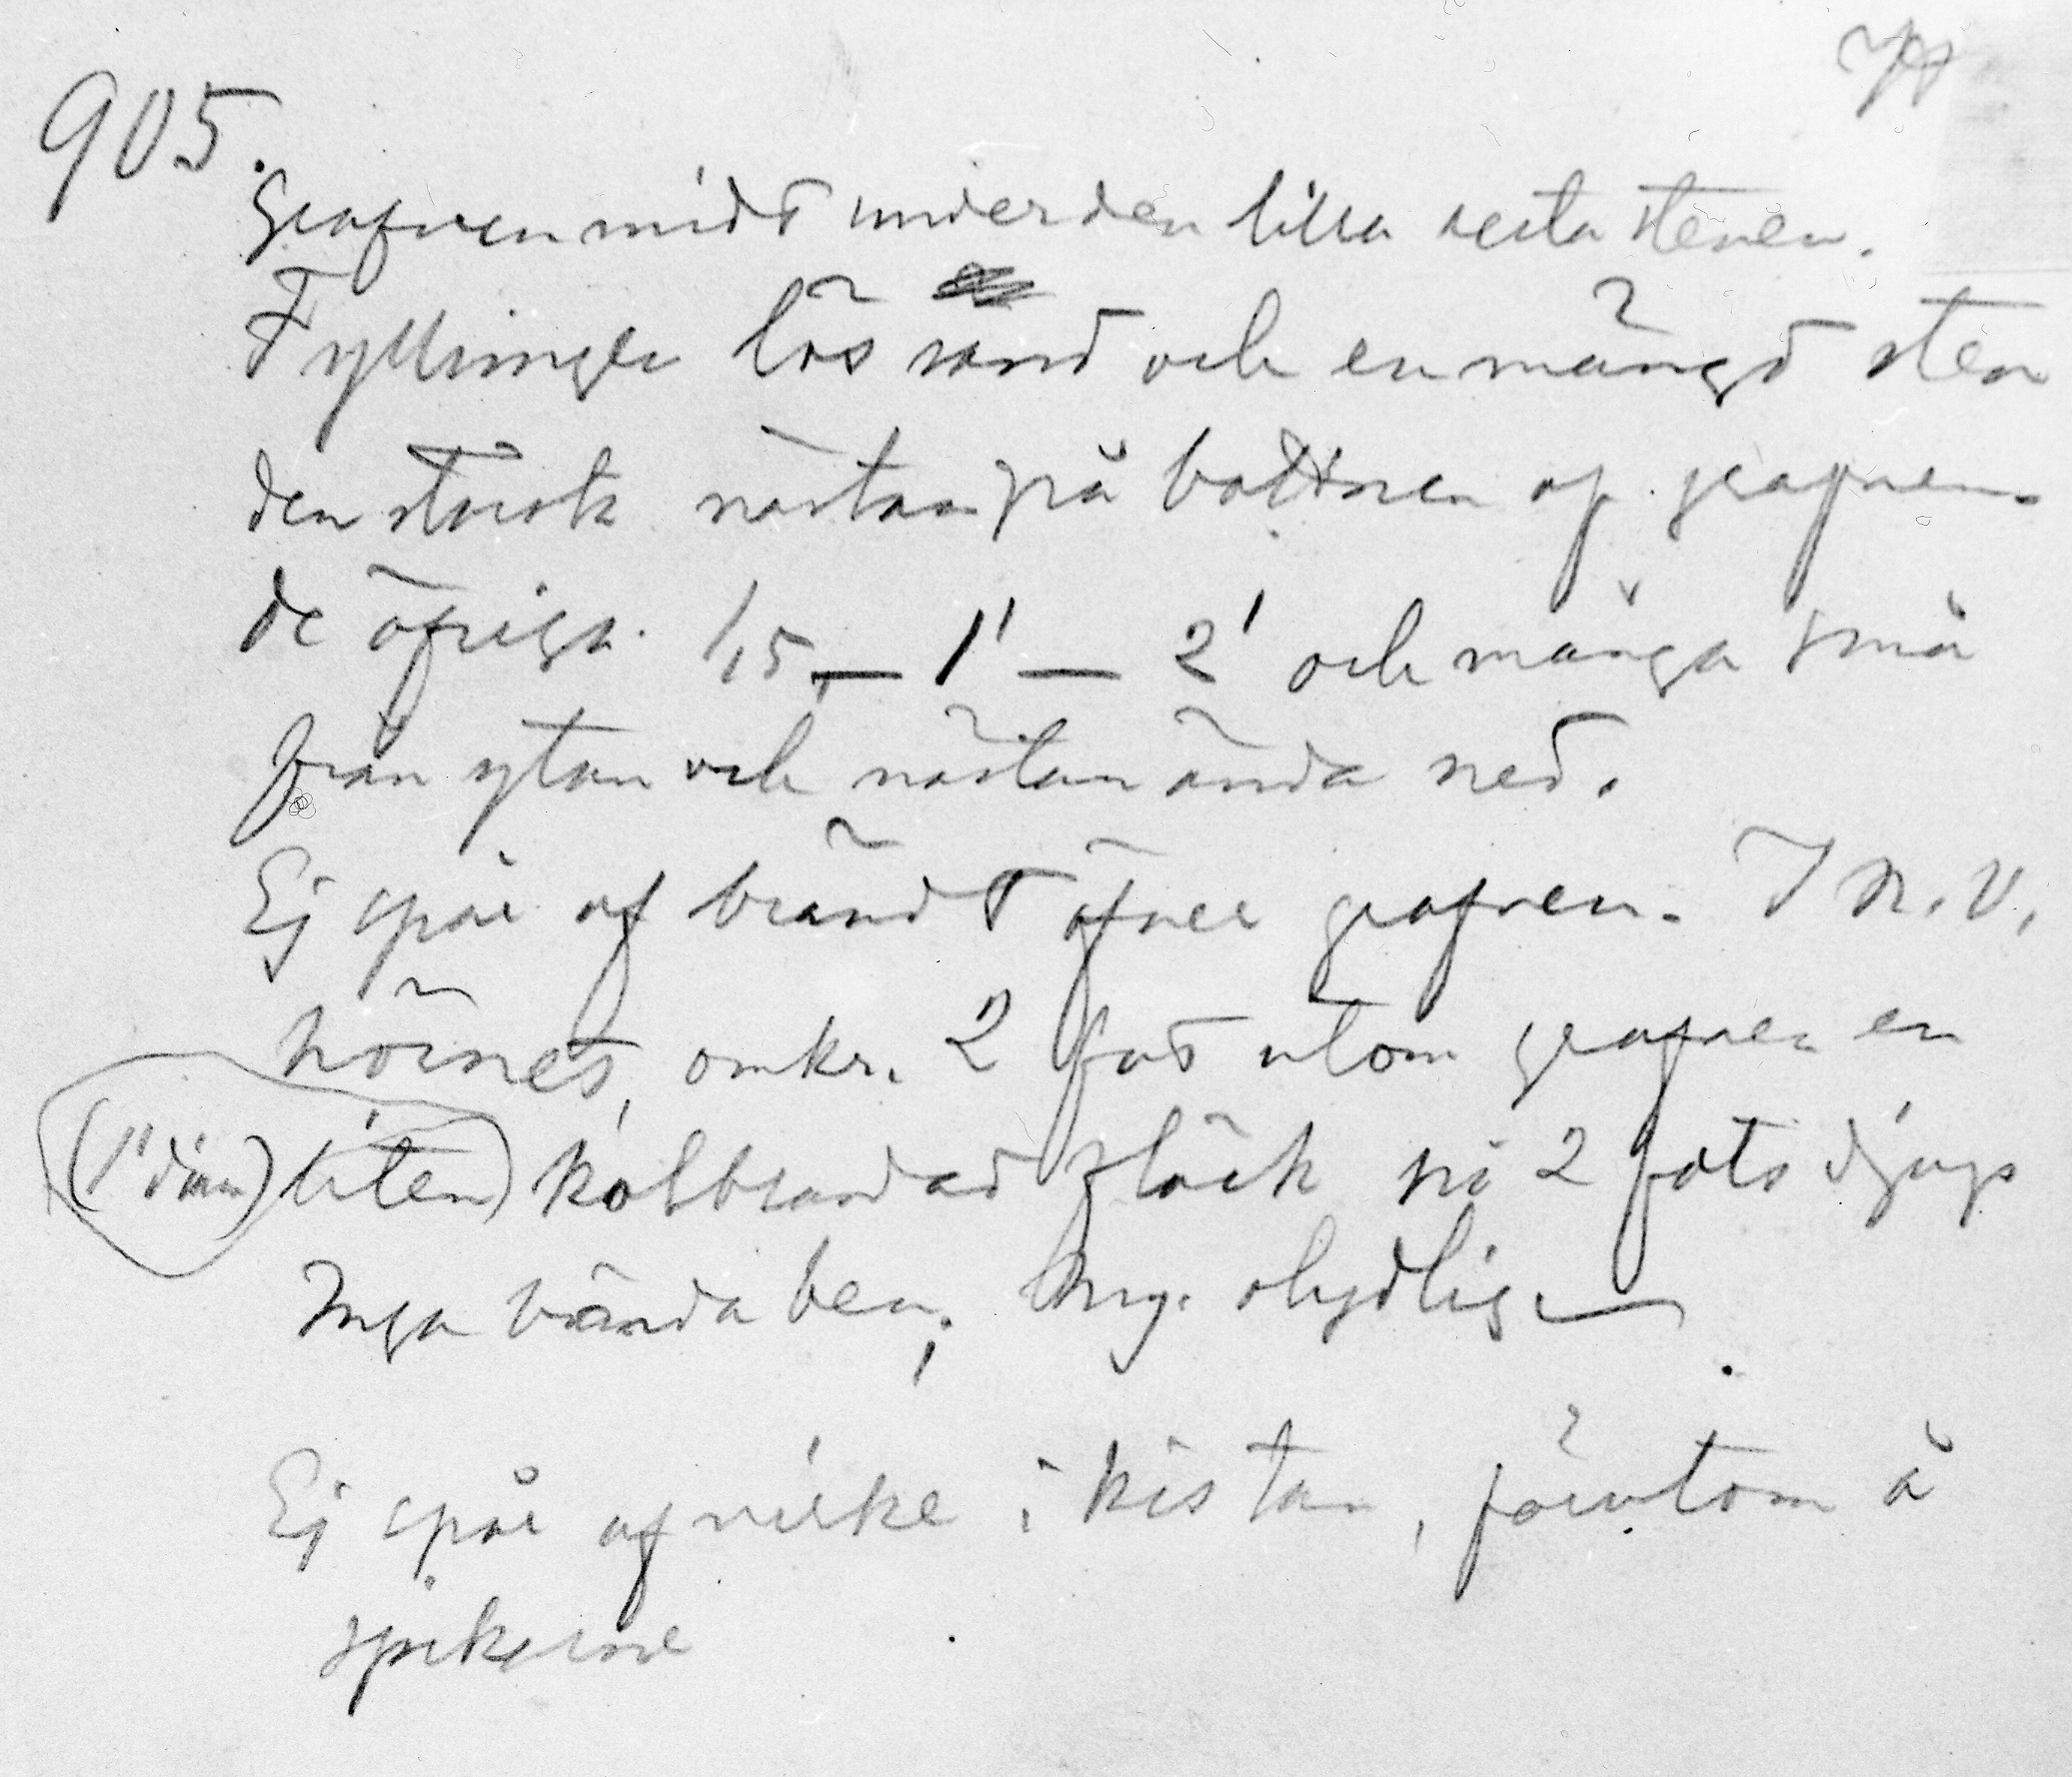 905.
Grafven midt under den lilla resta stenen.
Fyllningen lös sand och en mängd sten
den största nästan på bottnen af grafven.
de öfriga 1,5 — 1' — 2' och många små
från ytan och nästan ända ned.
Ej spår af brändt öfver grafven. I N.V.
hörnet, omkr. 2 fot utom grafven en
(1' diam) liten) kolblandad fläck på 2 fots djup
Inga brända ben; Mg. otydlig.
Ej spår af virke i kistan, förutom å
spikarne